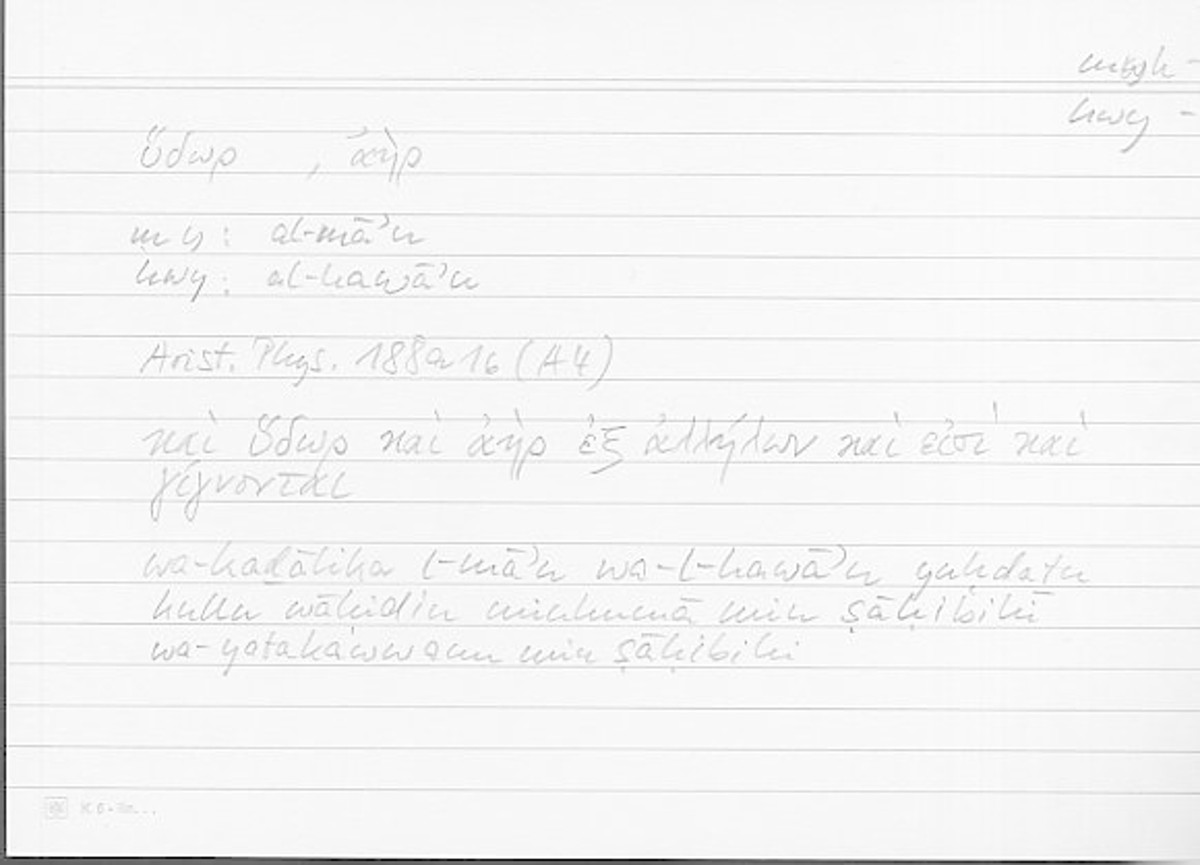 hwy -
ὕδωρ , ἀήρ
my : al-māʾu
hwy : al-hawāʾu
Arist. Phys. 188a16 (A4)
καὶ ὕδωρ καὶ ἀὴρ ἐξ ἀλλήλων καὶ εἰσὶ καὶ
γίγνονται
wa-kaḏālika l-māʾu wa-l-hawāʾu yuḥdaṯu
kullu wāḥidin minhumā min ṣāḥibihī
wa-yatakawwanu min ṣāḥibihi